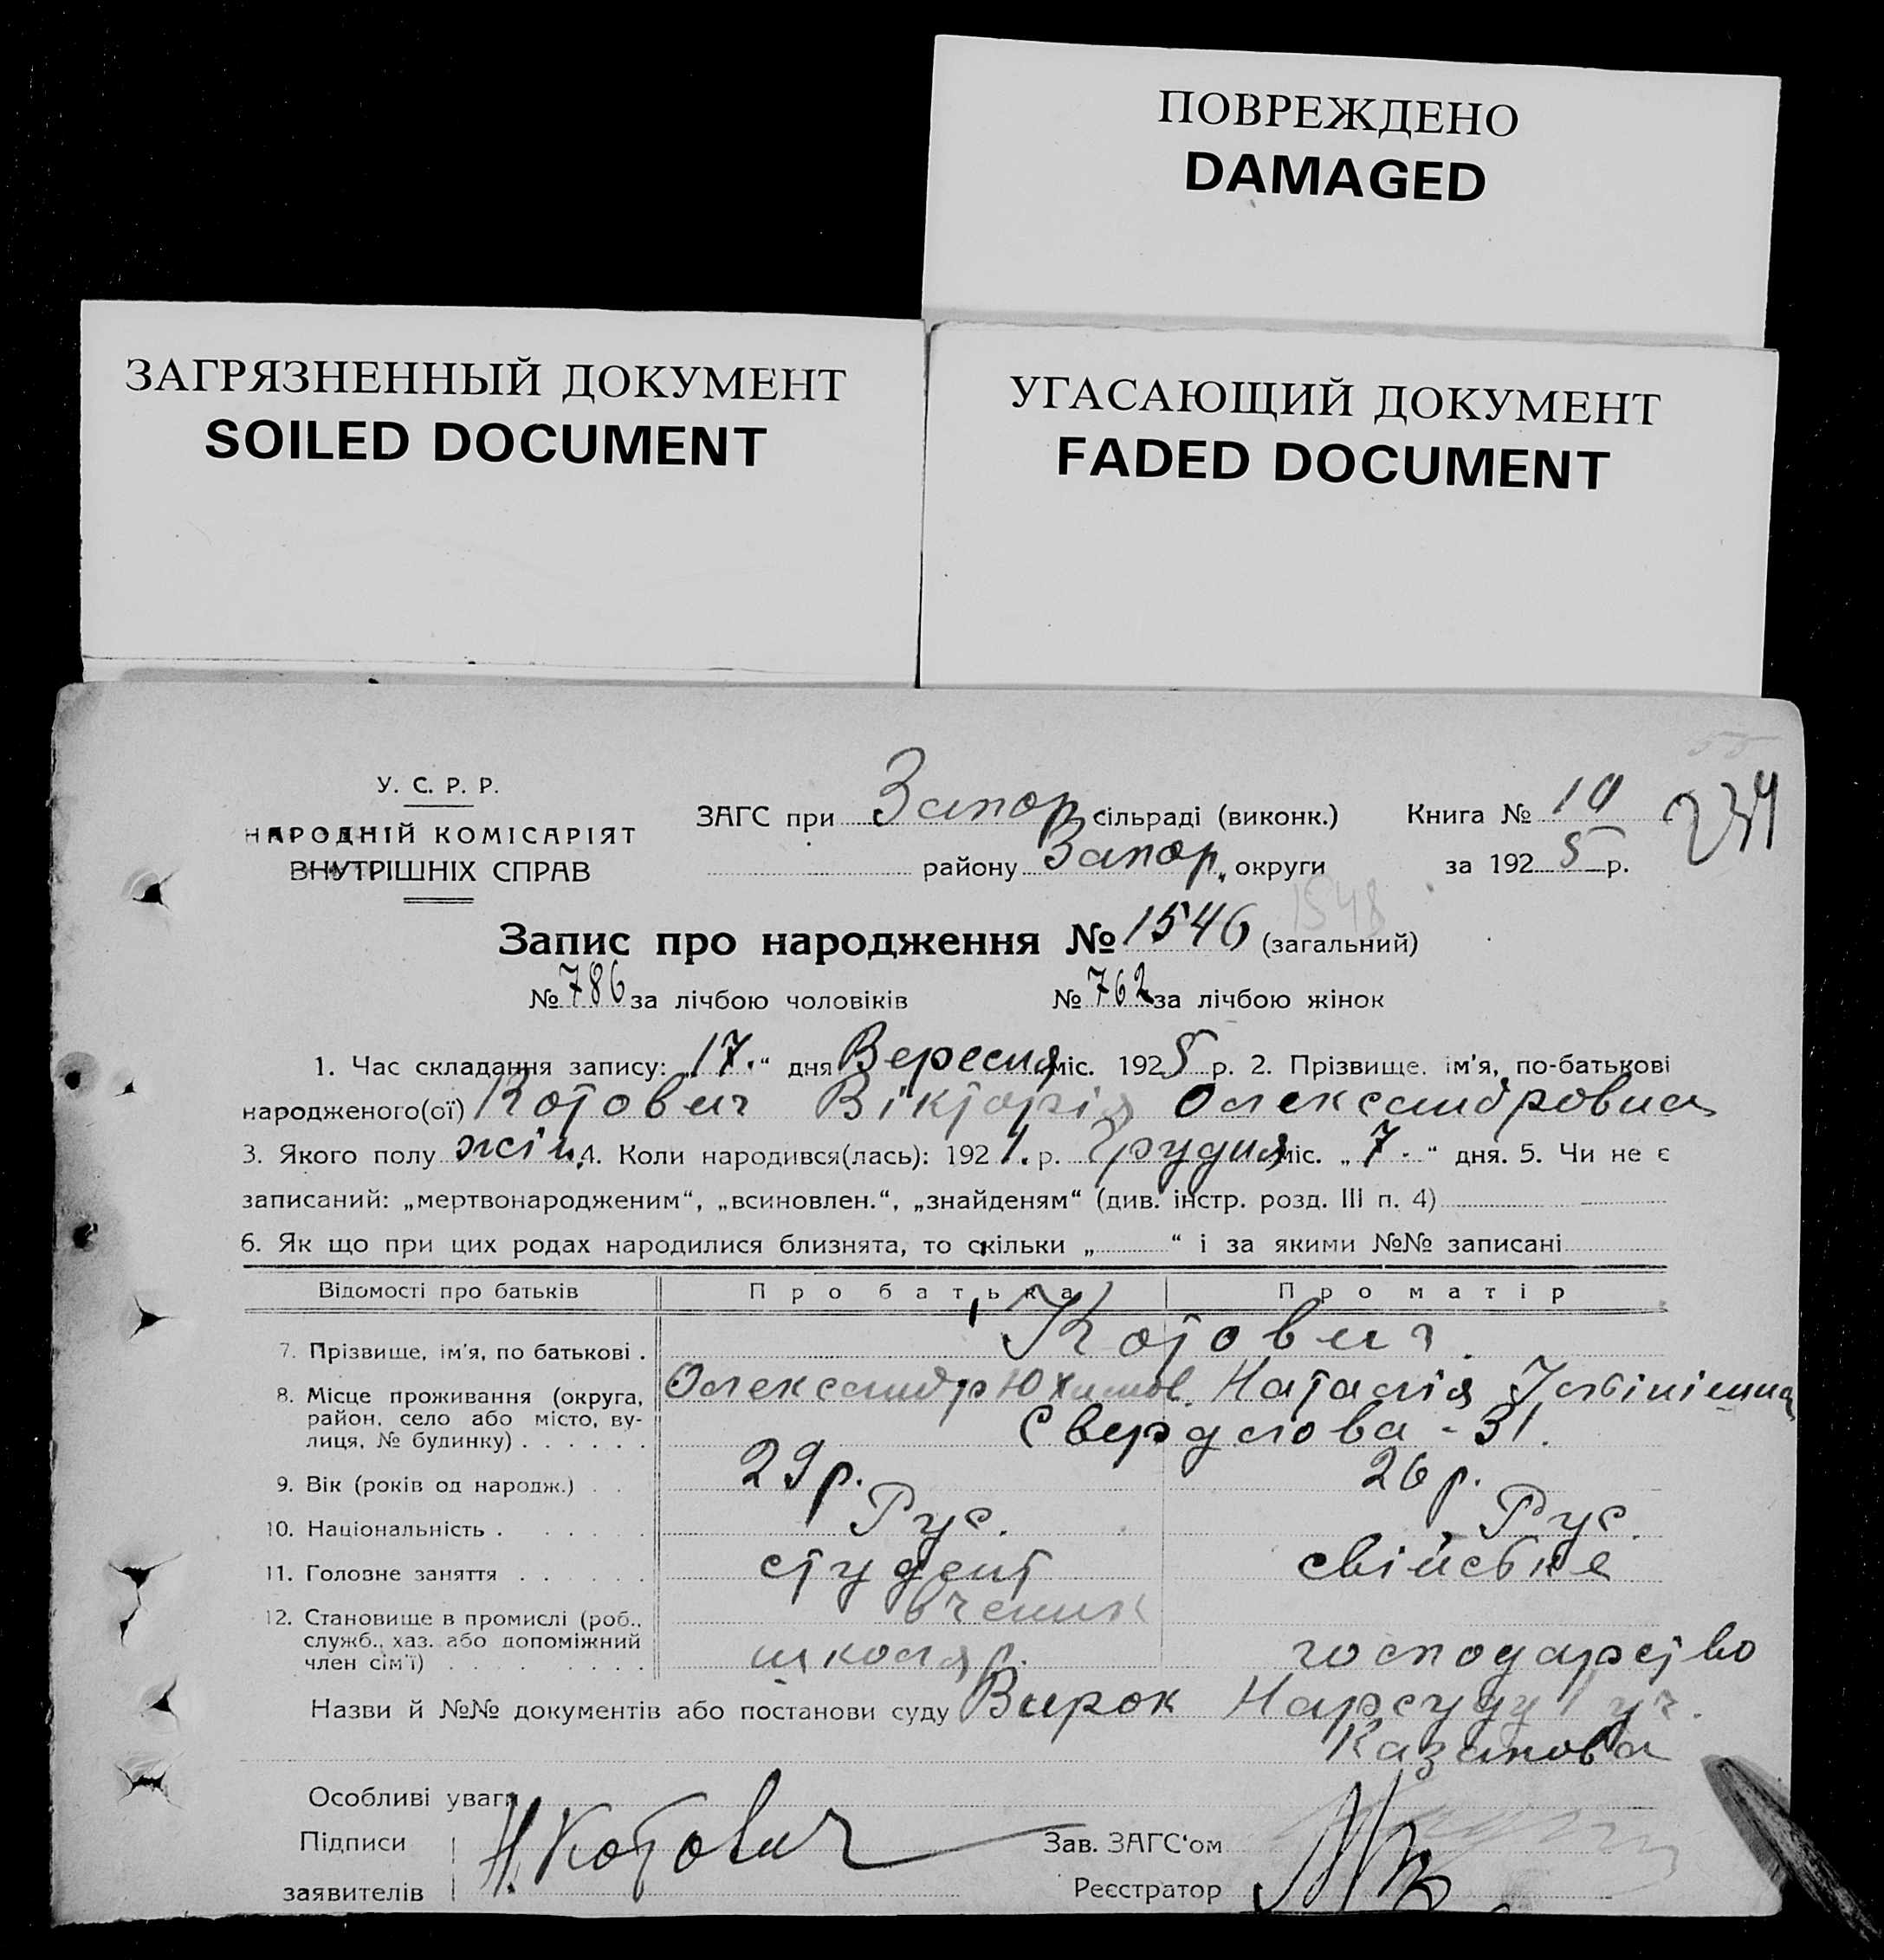 ПОВРЕЖДЕНО
DAMAGED
ЗАГРЯЗНЕННЫЙ ДОКУМЕНТ
SOILED DOCUMENT
УГАСАЮЩИЙ ДОКУМЕНТ
FADED DOCUMENT
У. С. Р. Р.
НАРОДНІЙ КОМІСАРІЯТ
ВНУТРІШНІХ СПРАВ
ЗАГС при Запор. сільраді (виконк.)
району Запор. округи
Книга № 10
за 1925 р.
234
Запис про народження № 1546 (загальний)
1548
№ 786 за лічбою чоловіків № 762 за лічбою жінок
1. Час складання запису: „17.“ дня Вересня міс. 1925 р. 2. Прізвище, ім'я, по-батькові
народженого(ої) Котович Вікторія Олександровна
3. Якого полу жін. 4. Коли народився(лась): 1921. р. Грудня міс. „7.“ дня. 5. Чи не є
записаний: „мертвонародженим“, „всиновлен.“, „знайденям“ (див. інстр. розд. III п. 4)
6. Як що при цих родах народилися близнята, то скільки „ “ і за якими №№ записані
Відомості про батьків Про батька Про матір
7. Прізвище, ім'я, по батькові . Котович.
8. Місце проживання (округа, Олександр Юхимов. Наталія
район, село або місто, ву-
лиця, № будинку) . . . . . . Свердлова - 31.
9. Вік (років од народж.) . . 29 р. 26 р.
10. Національність . . . . . . Рус. Рус.
11. Головне заняття . . . . . студент свійське
12. Становище в промислі (роб., вченик
служб., хаз. або допоміжний
член сім'ї) . . . . . . . . школяр. господарство
Назви й №№ документів або постанови суду Вирок Нарсуду 1 уч.
Казанова
Особливі уваги
Підписи
заявителів
Н. Котович
Зав. ЗАГС'ом
Реєстратор